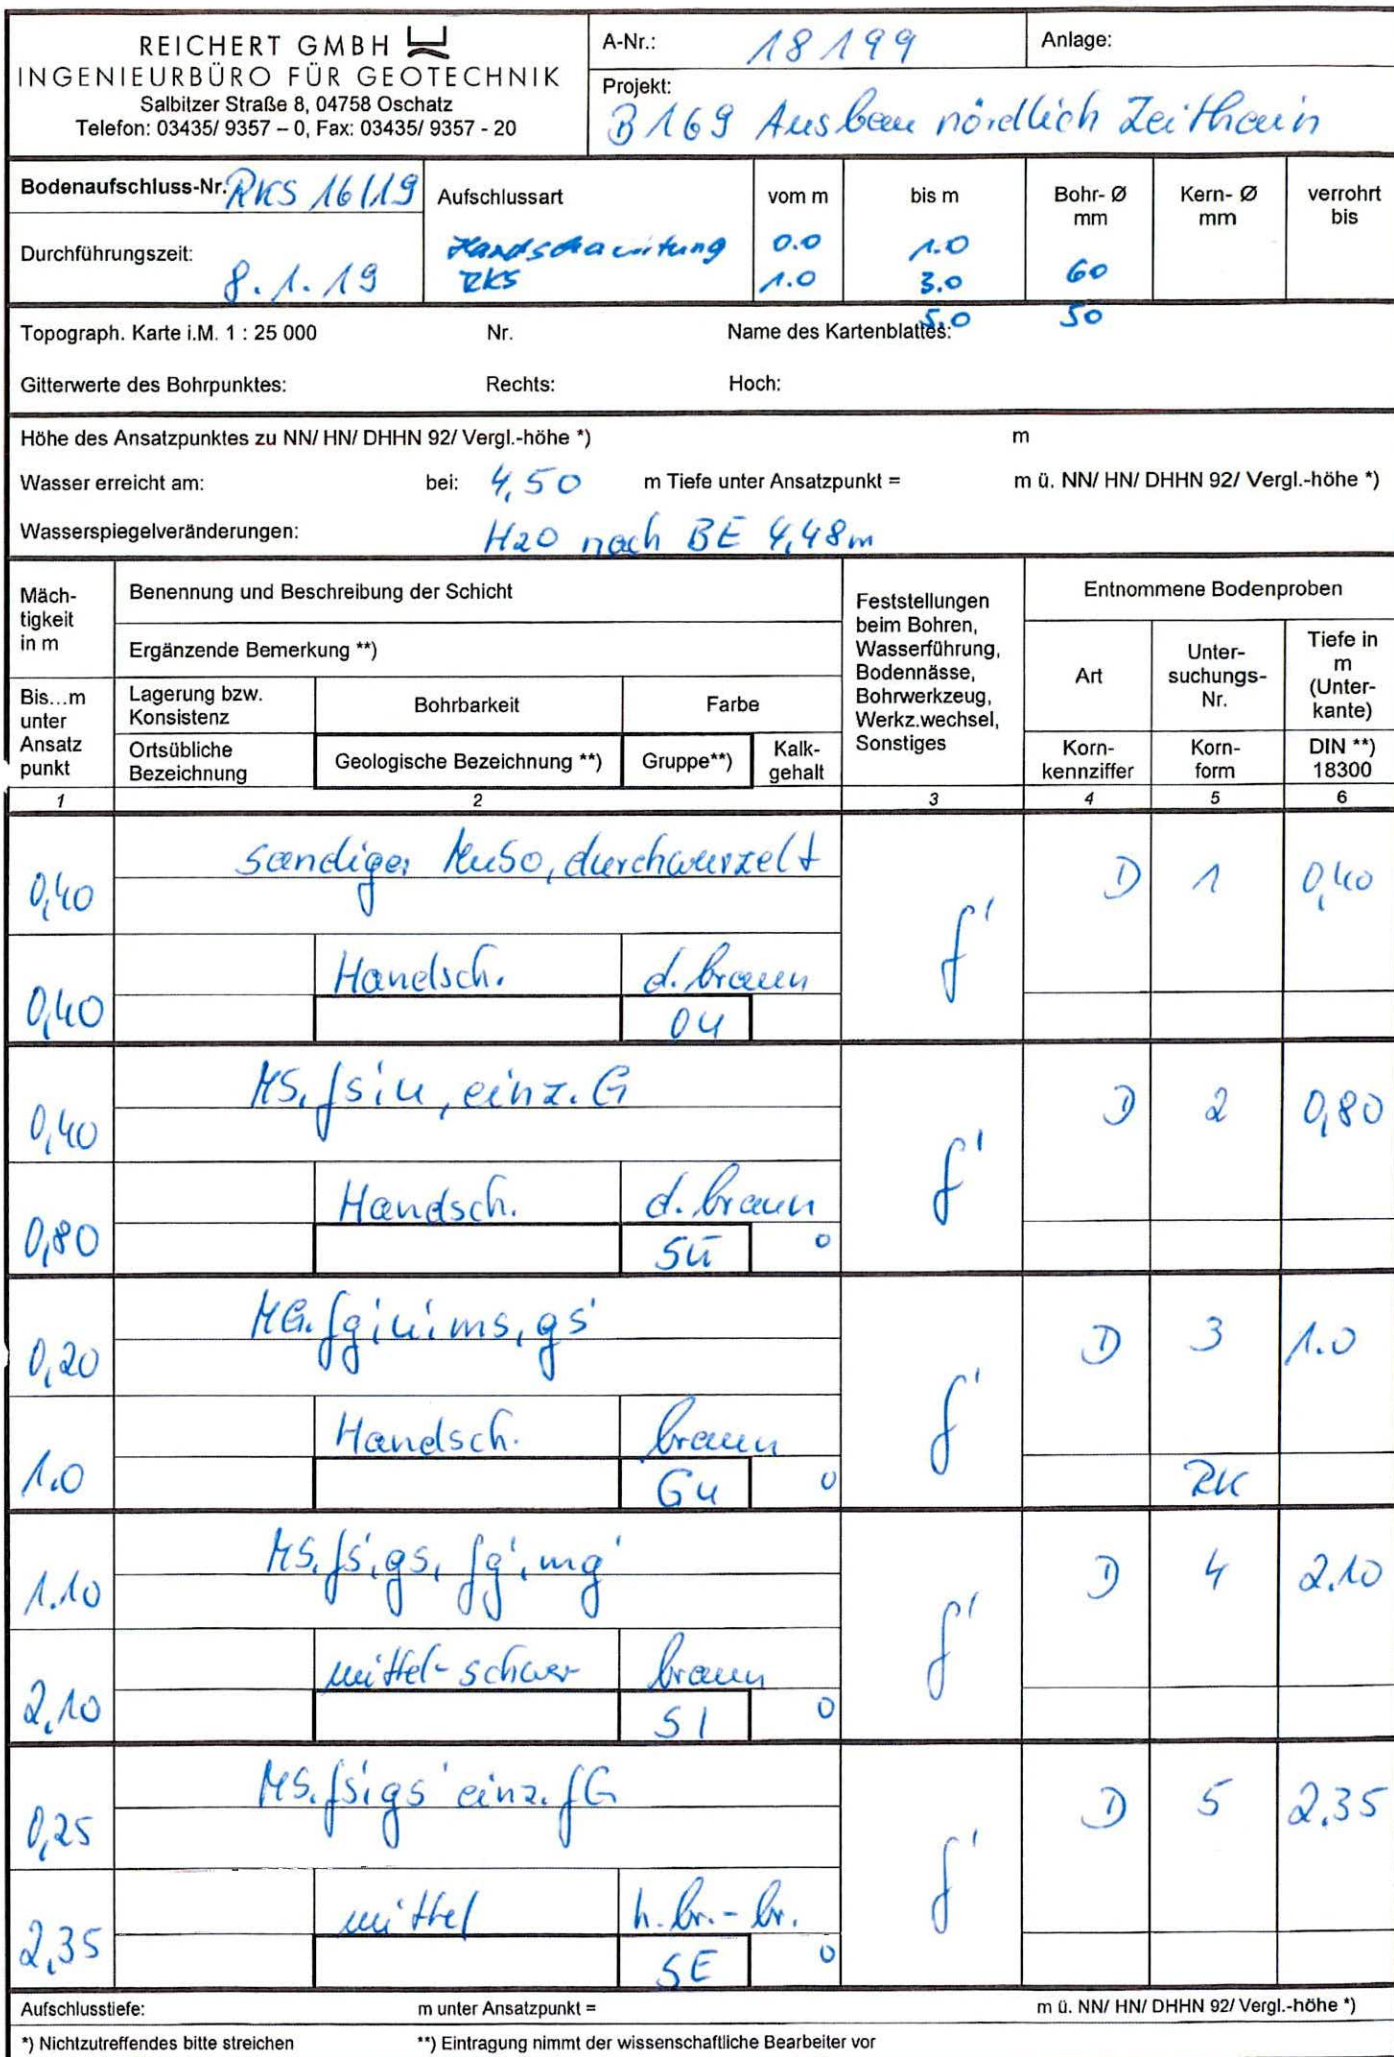 REICHERT GMBH
INGENIEURBÜRO FÜR GEOTECHNIK
Salbitzer Straße 8, 04758 Oschatz
Telefon: 03435/ 9357 – 0, Fax: 03435/ 9357 - 20
A-Nr.: 18199
Anlage:
Projekt:
B 169 Ausbau nördlich Zeithain
Bodenaufschluss-Nr: RKS 16/19
Durchführungszeit:
8.1.19
Aufschlussart vom m bis m Bohr- Ø mm Kern- Ø mm verrohrt bis
Handschachtung 0.0 1.0
RKS 1.0 3.0 60
5.0 50
Topograph. Karte i.M. 1 : 25 000 Nr. Name des Kartenblattes:
Gitterwerte des Bohrpunktes: Rechts: Hoch:
Höhe des Ansatzpunktes zu NN/ HN/ DHHN 92/ Vergl.-höhe *) m
Wasser erreicht am: bei: 4,50 m Tiefe unter Ansatzpunkt = m ü. NN/ HN/ DHHN 92/ Vergl.-höhe *)
Wasserspiegelveränderungen: H2O nach BE 4,48m
Mäch-
tigkeit
in m
Bis...m
unter
Ansatz
punkt
Benennung und Beschreibung der Schicht
Ergänzende Bemerkung **)
Lagerung bzw.
Konsistenz
Bohrbarkeit
Farbe
Ortsübliche
Bezeichnung
Geologische Bezeichnung **)
Gruppe**)
Kalk-
gehalt
Feststellungen
beim Bohren,
Wasserführung,
Bodennässe,
Bohrwerkzeug,
Werkz.wechsel,
Sonstiges
Entnommene Bodenproben
Art
Unter-
suchungs-
Nr.
Tiefe in
m
(Unter-
kante)
Korn-
kennziffer
Korn-
form
DIN **)
18300
1 2 3 4 5 6
sandiger MuSo, durchwurzelt
0,40 f' D 1 0,40
Handsch. d. braun
0,40 OU
MS, fs, u, einz. G
0,40 f' D 2 0,80
Handsch. d. braun
0,80 SŪ 0
MG, fg, u, ms, gs'
0,20 f' D 3 1.0
Handsch. braun
1.0 GU 0 RK
MS, fs', gs, fg', mg'
1.10 f' D 4 2.10
mittel-schwer braun
2,10 SI 0
MS, fs, gs' einz. fG
0,25 f' D 5 2.35
mittel h. br. - br.
2,35 SE 0
Aufschlusstiefe: m unter Ansatzpunkt = m ü. NN/ HN/ DHHN 92/ Vergl.-höhe *)
*) Nichtzutreffendes bitte streichen **) Eintragung nimmt der wissenschaftliche Bearbeiter vor